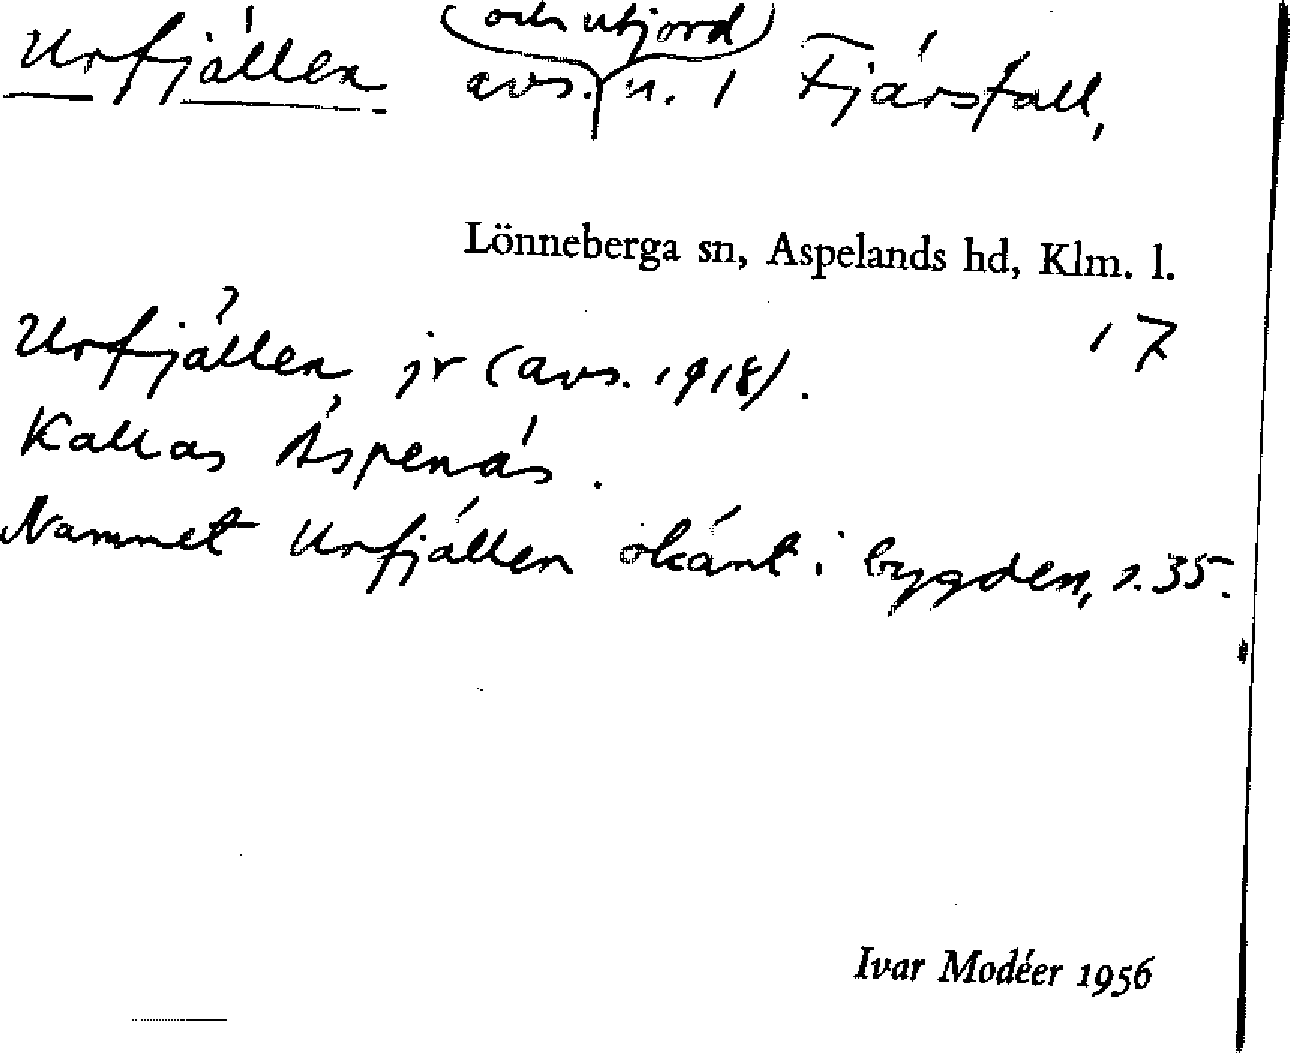 (och utjord)
Urfjällen avs. u. 1 Fjärsfall,
Lönneberga sn, Aspelands hd, Klm. l.
17
Urfjällen, jr (avs. 1918).
Kallas Äspenäs.
Namnet Urfjällen okänt i bygden, s. 35.
Ivar Modéer 1956